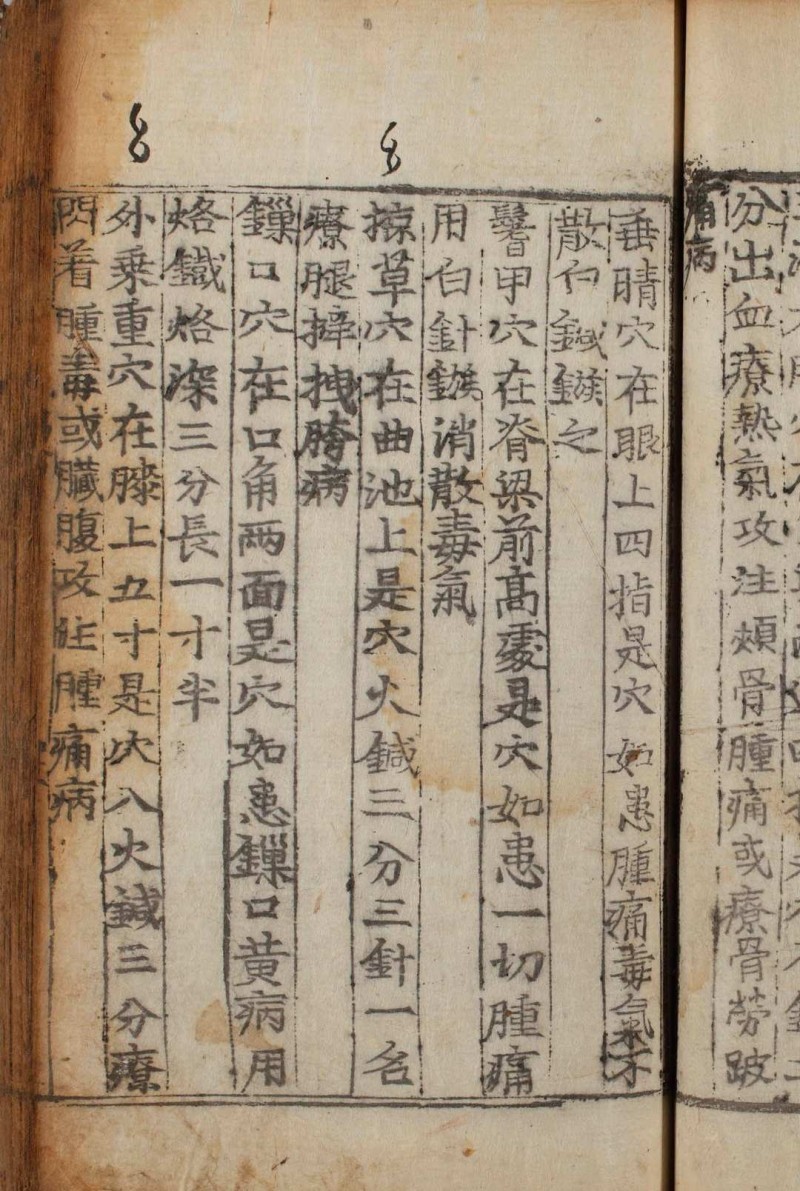 分出血療熱氣攻注頰骨腫痛或療骨勞跛
痛病
垂睛穴在眼上四指是穴如患腫痛毒氣不
散白鍼鏃之
鬐甲穴在脊梁前高處是穴如患一切腫痛
用白針鏃消散毒氣
掠草穴在曲池上是穴火鍼三分三針一名
療腿拽胯病
鏁口穴在口角兩面是穴如患鏁口黃病用
烙鐵烙深三分長一寸半
外乗重穴在膝上五寸是穴入火鍼三分療
閃着腫毒或臟腹攻注腫痛病